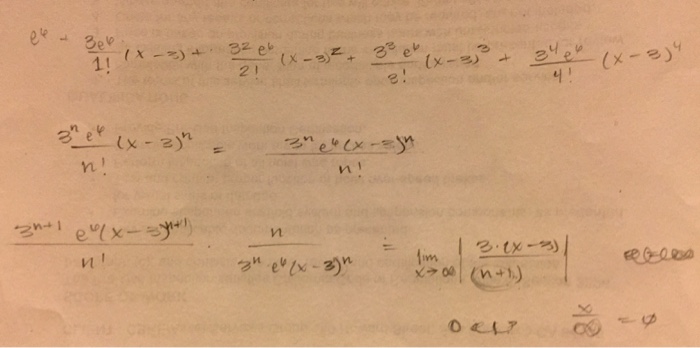 e^6 + 3e^6/1! (x-3) + 3^2 e^6/2! (x-3)^2 + 3^3 e^6/3! (x-3)^3 + 3^4 e^6/4! (x-3)^4
3^n e^6/n! (x-3)^n = 3^n e^6 (x-3)^n/n!
3^{n+1} e^6 (x-3)^{n+1}/n! · n/3^n·e^6(x-3)^n = lim x→∞ |3·(x-3)/(n+1)|
0<1? x/∞ = 0